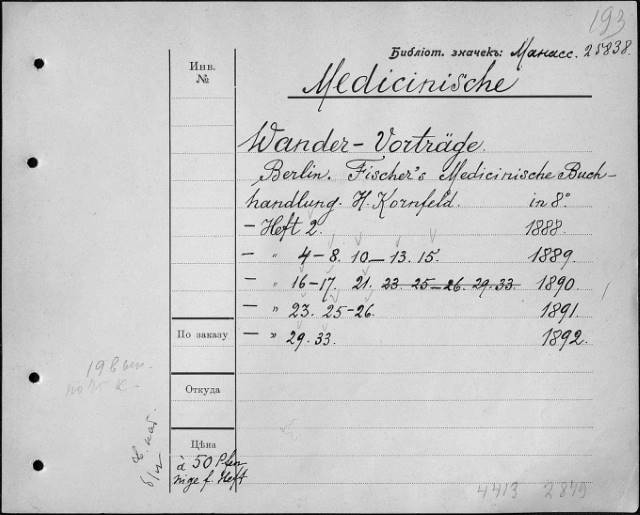 193
Библіот. значекъ: Манасс. 25838.
Инв.
№
Medicinische
Wander-Vorträge.
Berlin. Fischer's Medicinische Buch-
handlung. H. Kornfeld. in 8°
- Heft 2. 1888.
- " 4-8. 10-13. 15. 1889.
- " 16-17. 21. 23 25-26. 29. 33. 1890.
- " 23. 25-26. 1891.
- " 29. 33. 1892.
По заказу
19 вып.
по 25 к.
Откуда
Цѣна
à 50 Pfen
nige f. Heft
4413 2879